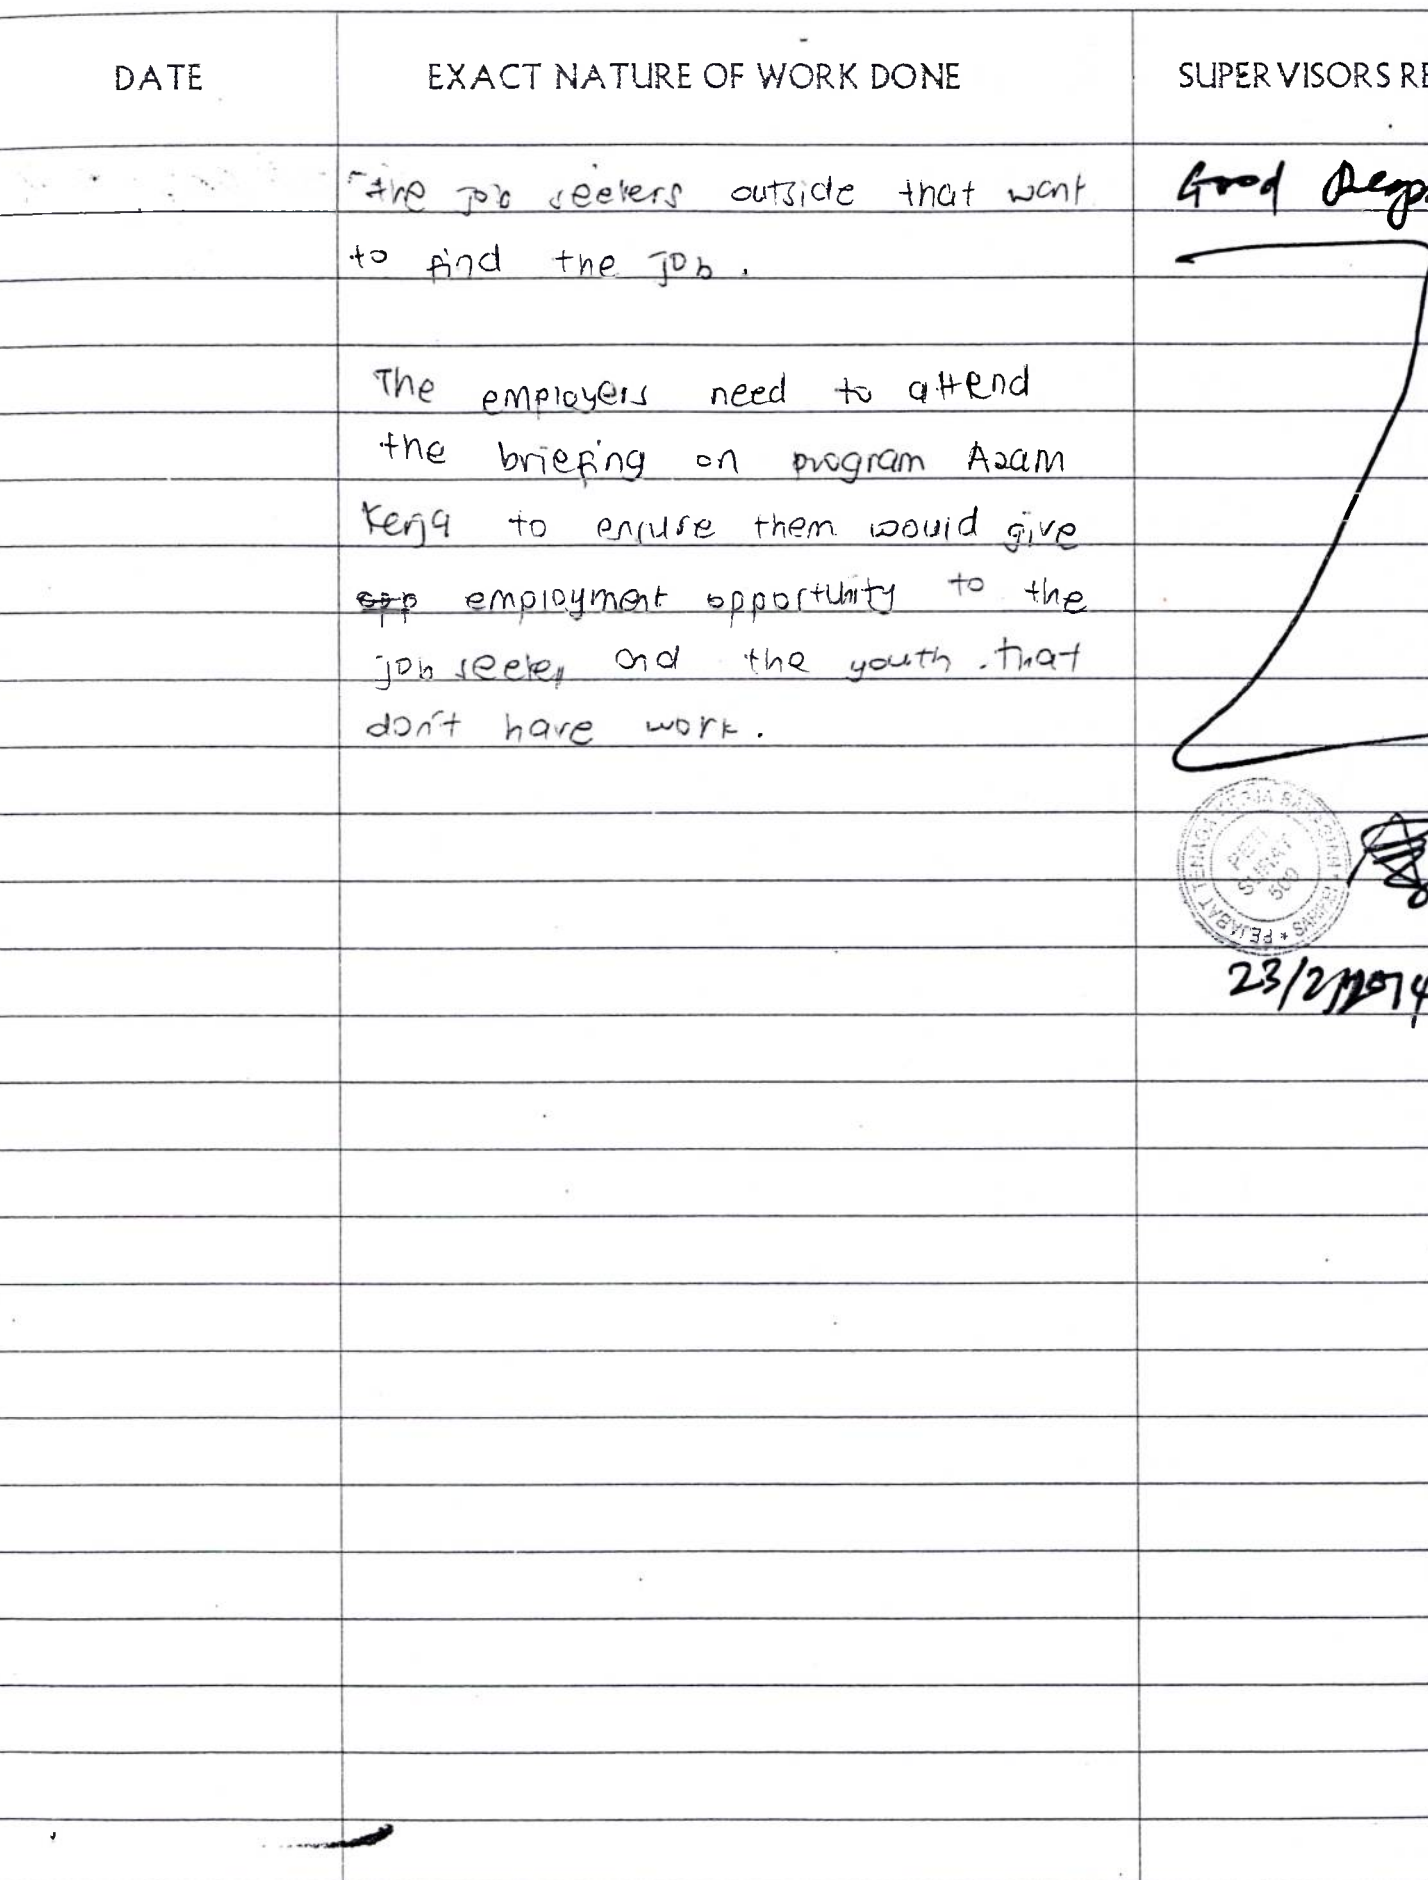 DATE EXACT NATURE OF WORK DONE SUPERVISORS RE
the job seekers outside that want Good
to find the job.
The employers need to attend
the briefing on program Azam
Kerja to ensure them would give
opp employment opportunity to the
job seeker and the youth that
don't have work.
PEJABAT TENAGA KERJA BAHAGIAN * SARIKEI *
PETI
SURAT
500
23/2/2014